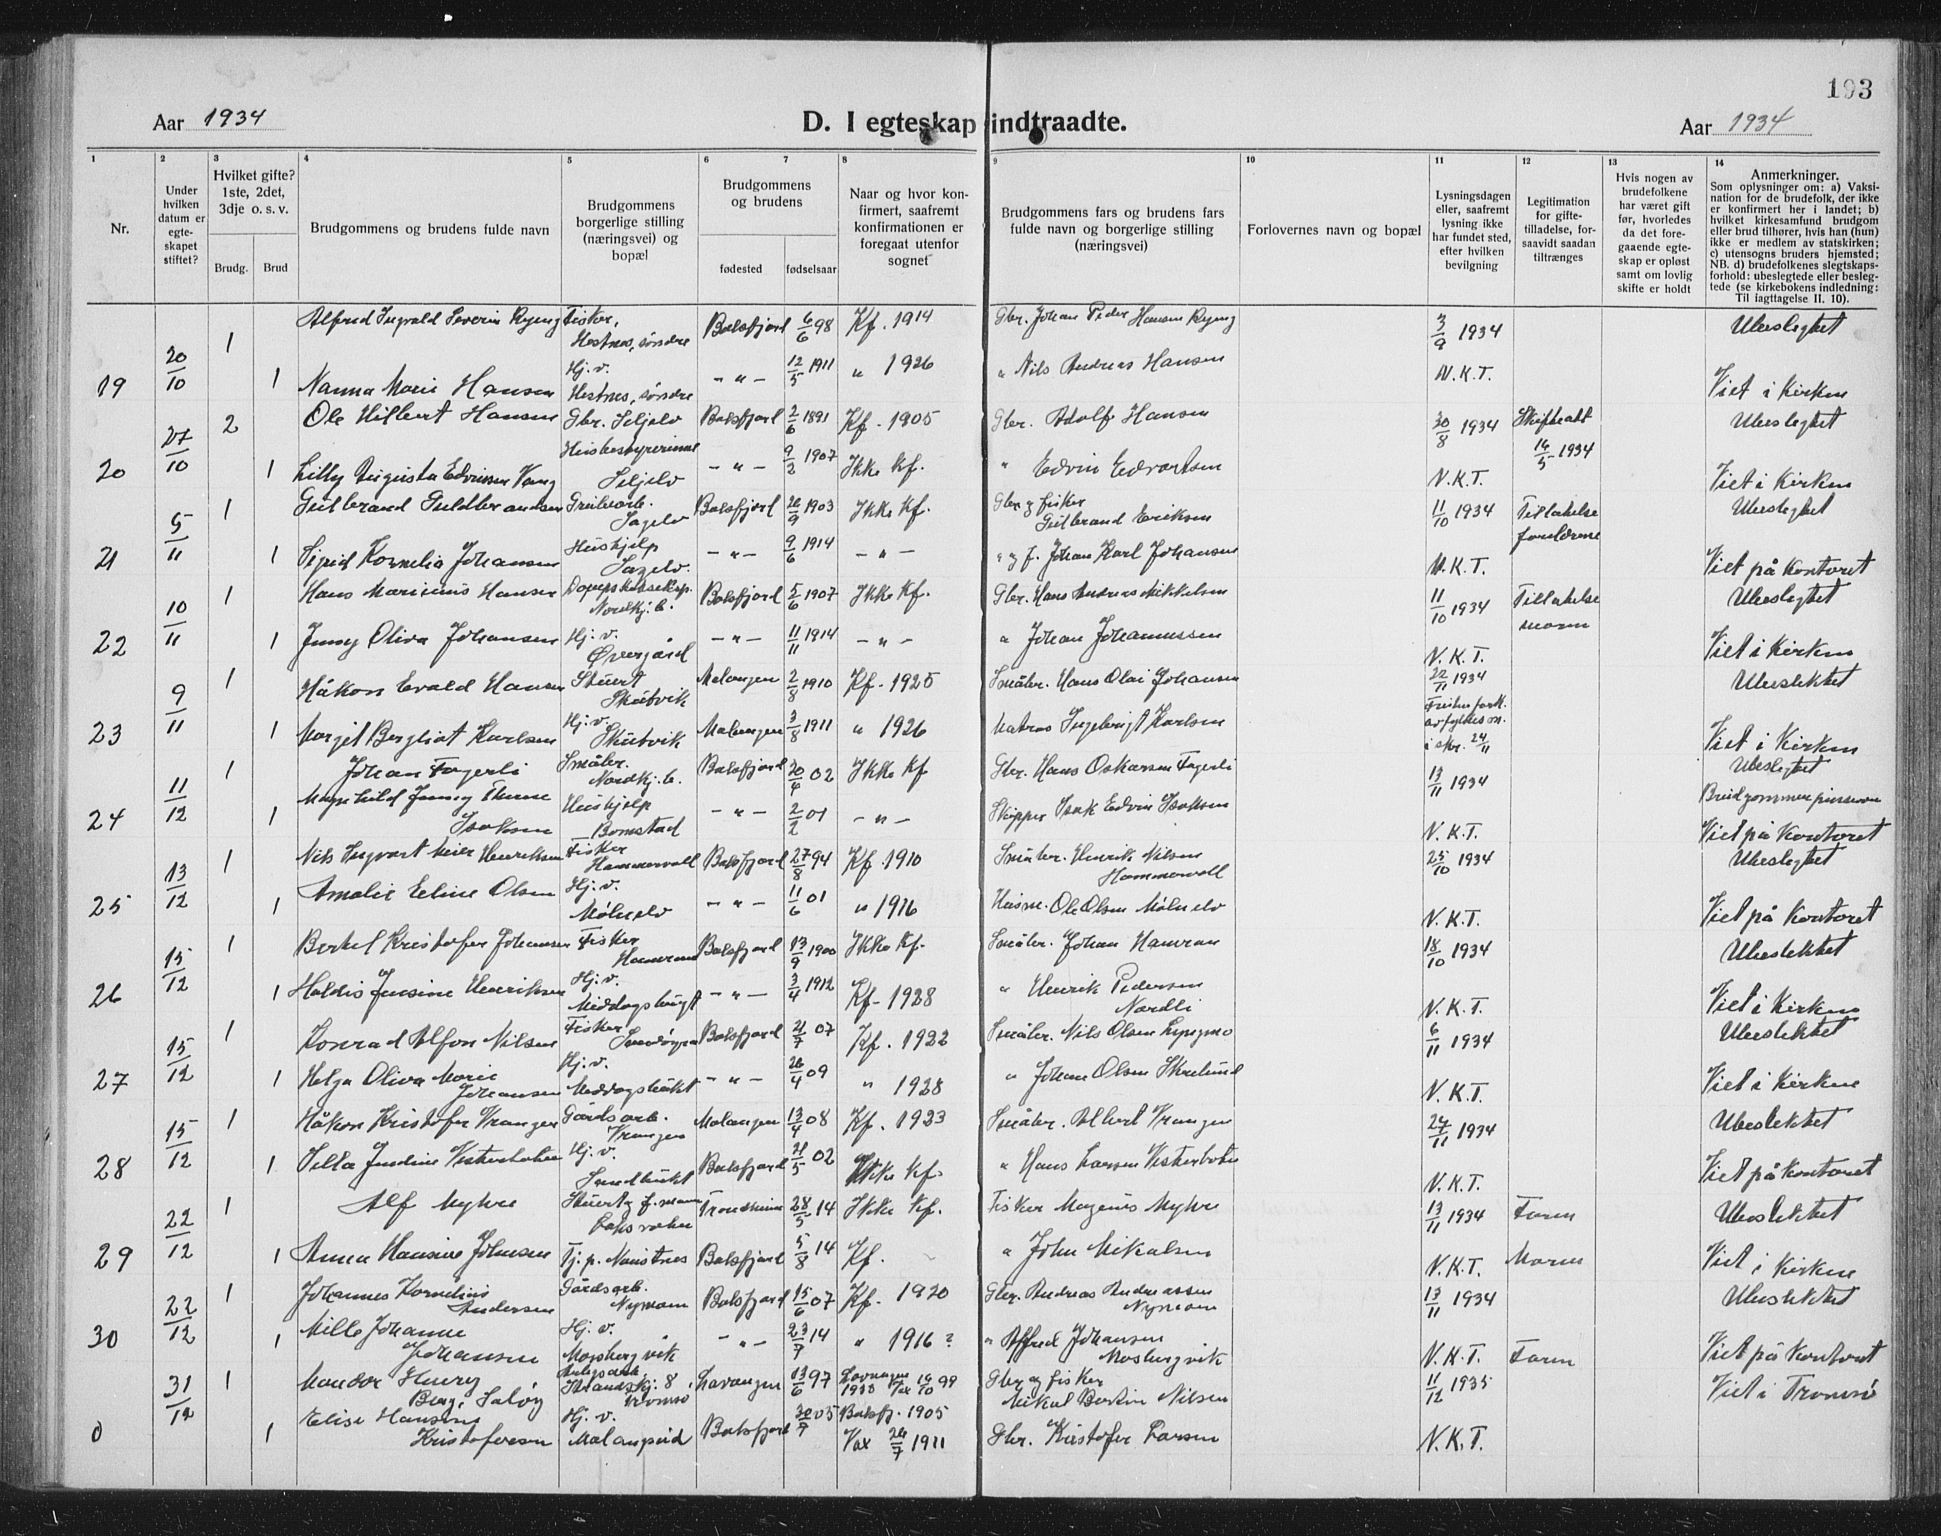 193
Aar 1934
D. I egteskap indtraadte.
Aar 1934
1 2 3 4 5 6 7 8 9 10 11 12 13 14
Nr.
Under hvilken datum er egteskapet stiftet?
Hvilket gifte? 1ste, 2det, 3dje o. s. v.
Brudg. Brud
Brudgommens og brudens fulde navn
Brudgommens borgerlige stilling (næringsvei) og bopæl
Brudgommens og brudens
fødested fødselsaar
Naar og hvor konfirmert, saafremt konfirmationen er foregaat utenfor sognet
Brudgommens fars og brudens fars fulde navn og borgerlige stilling (næringsvei)
Forlovernes navn og bopæl
Lysningsdagen eller, saafremt lysning ikke har fundet sted, efter hvilken bevilgning
Legitimation for giftetilladelse, forsaavidt saadan tiltrænges
Hvis nogen av brudefolkene har været gift før, hvorledes da det foregaaende egteskap er opløst samt om lovlig skifte er holdt
Anmerkninger.
Som oplysninger om: a) Vaksination for de brudefolk, der ikke er konfirmert her i landet; b) hvilket kirkesamfund brudgom eller brud tilhører, hvis han (hun) ikke er medlem av statskirken; c) utensogns bruders hjemsted; NB. d) brudefolkenes slegtskapsforhold: ubeslegtede eller beslegtede (se kirkebokens indledning: Til iagttagelse II. 10).
1 Alfred Ingvald Severin Ryeng Fisker, Hestnes, søndre Balsfjord 6/6 98 Kf. 1914 Gbr. Johan Peder Hansen Ryeng 3/9 1934 Ubeslegtet
19 20/10 1 Nanna Marie Hansen Hj. v. Hestnes, søndre - " - 12/5 1911 " 1926 " Nils Andreas Hansen N.K.T. Viet i Kirken
2 Ole Hilbert Hansen Gbr. Seljelv Balsfjord 2/6 1891 Kf. 1905 Gbr. Adolf Hansen 30/8 1934 Skifteatt 16/5 1934 Ubeslegtet
20 27/10 1 Lilly Augusta Edvinsen Vang Husbestyrerinne Seljelv - " - 9/2 1907 Ikke Kf. " Edvin Edvartsen N.K.T. Viet i Kirken
1 Gulbrand Guldbrandsen Grubearb. Sagelv Balsfjord 26/9 1903 Ikke Kf. Gbr. og fisker Gulbrand Eriksen 11/10 1934 Tillatelse foreldrene Ubeslegtet
21 5/11 1 Sigrid Kornelia Johansen Hushjelp Sagelv. - " - 9/6 1914 - " - " og f. Johan Karl Johansen N.K.T. Viet på kontoret
1 Hans Marinius Hansen Nordkj. b. Balsfjord 5/6 1907 Ikke Kf. Gbr. Hans Andreas Mikkelsen 11/10 1934 Tillatelse moren Ubeslegtet
22 10/11 1 Jenny Oliva Johansen Hj. v. Øvergård - " - 11/11 1914 - " - " Johan Johannessen N.K.T. Viet i Kirken
1 Håkon Evald Hansen Stuert Skutvik Malangen 2/8 1910 Kf. 1925 Småbr. Hans Olai Johansen 22/11 1934 Ubeslektet
23 9/11 1 Margit Bergliot Karlsen Hj. v. Skutvik Malangen 3/8 1911 " 1926 Matros Ingebrigt Karlsen i skr. 24/11 Viet i Kirken
1 Johan Fagerli Småbr. Nordkj. b. Balsfjord 30/4 02 Ikke Kf Gbr. Hans Oskarsen Fagerli 13/11 1934 Ubeslegtet
24 11/12 1 Magnhild Jenny Isaksen Hushjelp Bomstad - " - 2/2 01 - " - Skipper Isak Edvin Isaksen N.K.T. Viet på kontoret
1 Nils Ingvart Meier Henriksen Fisker Hammervoll Balsfjord 27/8 94 Kf. 1910 Småbr. Henrik Nilsen Hammervoll 25/10 1934 Ubeslegtet
25 13/12 1 Amalie Eline Olsen Hj. v. Mølnelv - " - 11/6 01 " 1916 Husm. Ole Olsen Mølnelv N.K.T. Viet på kontoret
1 Berhel Kristofer Johansen Fisker Balsfjord 13/9 1900 Ikke Kf. Småbr. Johan Hamran 18/10 1934 Ubeslektet
26 15/12 1 Haldis Jensine Henriksen Hj. v. Middagsbugt - " - 3/4 1912 Kf - 1928 " Henrik Pedersen Nordli N.K.T. Viet i Kirken
1 Konrad Alfon Nilsen Fisker Balsfjord 21/7 07 Kf. 1922 Småbr. Nils Olsen Lyngmo 6/11 1934 Ubeslektet
27 15/12 1 Helga Oliva Marie Johansen Hj. v. Middagsbukt - " - 26/4 09 " 1928 " Johan Olsen Skrelund N.K.T. Viet i Kirken
1 Håkon Kristofer Vrangen Gårdsarb. Vrangen Malangen 13/4 08 Kf. 1923 Småbr. Albert Vrangen 24/11 1934 Ubeslektet
28 15/12 1 Hj. v. Sandbukt Balsfjord 21/5 02 Ikke Kf. " Hans Larsen Vesterbotn N.K.T. Viet på kontoret
1 Alf Myhre Trondheim 28/5 14 Ikke Kf. Fisker Magnus Myhre 13/11 1934 Faren Ubeslektet
29 22/12 1 Anna Hansine Johnsen Tj. p. Naustnes Balsfjord 5/8 14 Kf. " John Mikalsen N.K.T. Moren Viet i Kirken
1 Johannes Kornelius Andersen Gårdsarb. Nymoen Balsfjord 15/6 07 Kf. 1920 Gbr. Andreas Andreassen Nymoen 13/11 1934 Ubeslektet
30 22/12 1 Mille Johanne Johansen Hj. v. Mosbergvik - " - 23/7 14 " 1916 ? " Alfred Johansen Mosbergvik N.K.T. Faren Viet på kontoret
31/12 1 Mandor Henry Berg, Saløy Strandskj. 8, Tromsø Lavangen 13/6 97 Lavangen Vax 16/10 99 Gbr og fisker Mikal Bertin Nilsen 11/12 1935 Viet i Tromsø
0 1 Elise Hansine Kristofersen Hj. v. Malangseid Balsfjord 30/7 05 Balsfj. 1905 Vax 26/7 1911 Gbr. Kristofer Larsen N.K.T.